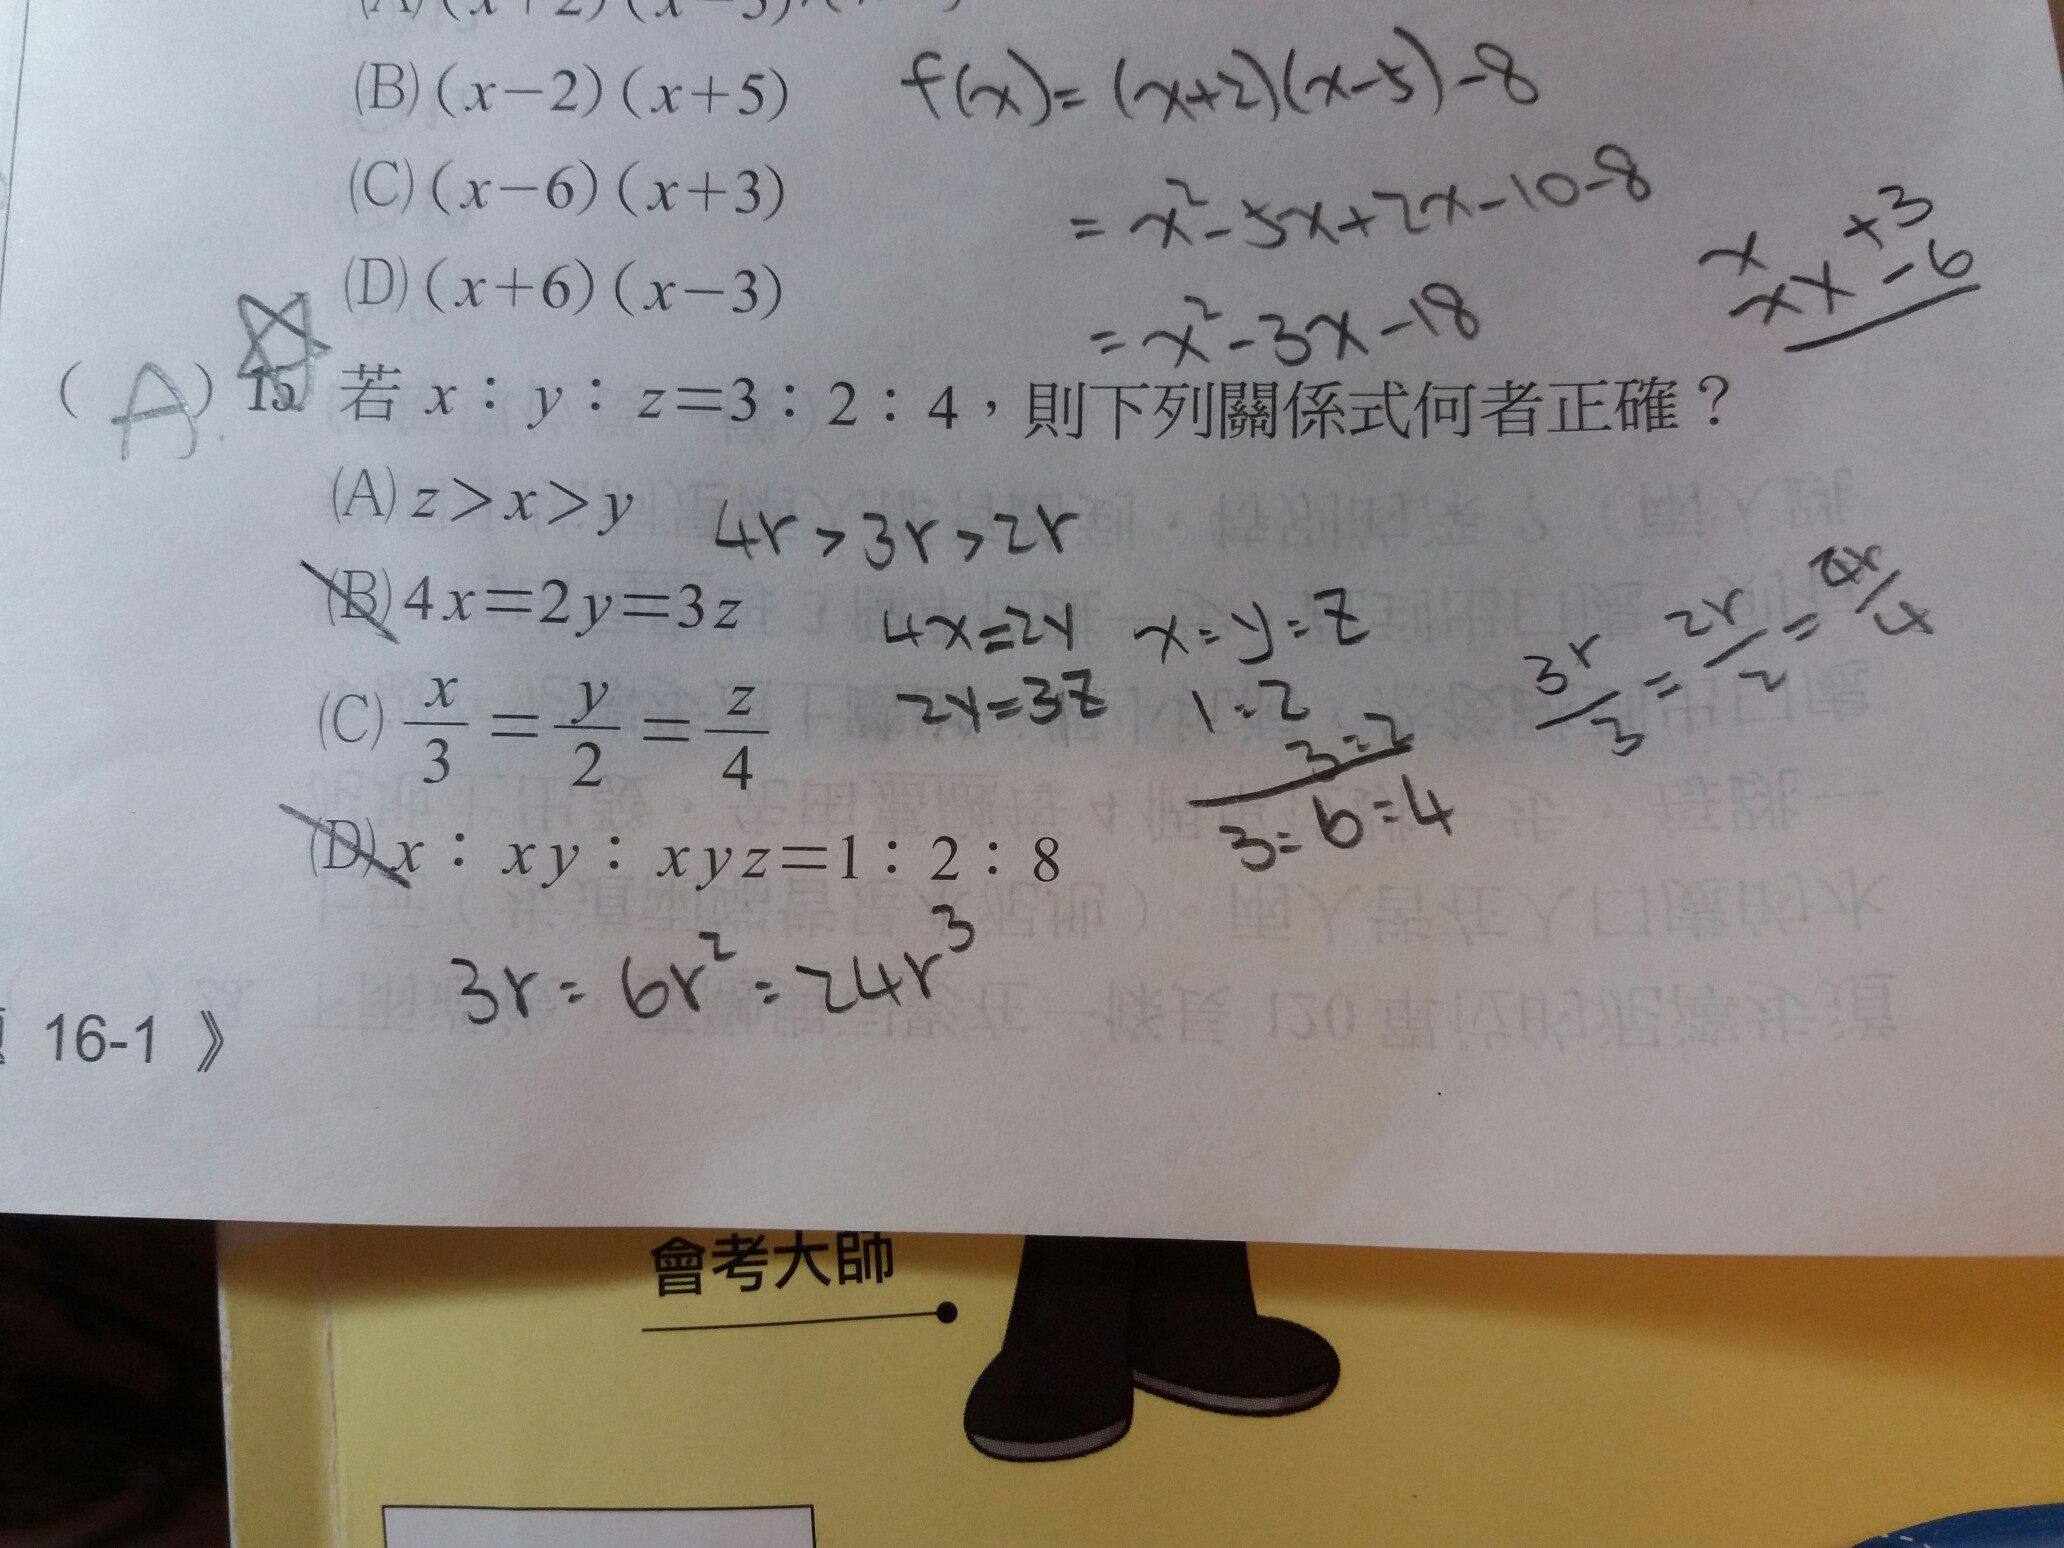 (B)(x−2)(x+5)
f(x)=(x+2)(x-5)-8
(C)(x−6)(x+3)
= x²-5x+2x-10-8
x +3
x x -6
(D)(x+6)(x−3)
= x²-3x-18
(A) 15. 若 x：y：z＝3：2：4，則下列關係式何者正確？
(A) z＞x＞y
4r>3r>2r
(B) 4x＝2y＝3z
4x=2y x:y:z
2y=3z 1:2
3:2
3:6:4
3r/3 = 2r/2 = 4r/4
(C) x/3＝y/2＝z/4
(D) x：xy：xyz＝1：2：8
3r:6r²:24r³
16-1 》
會考大師